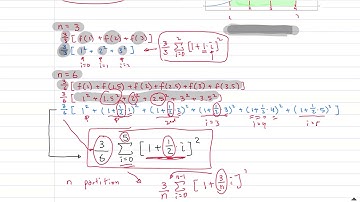 n = 3
3/3 [ f(1) + f(2) + f(3) ]
3/3 [ 1² + 2² + 3² ]
i=0 i=1 i=2
3/3 Σ_{i=0}^{2} [ 1 + 1·i ]²
n = 6
3/6 [ f(1) + f(1.5) + f(2) + f(2.5) + f(3) + f(3.5) ]
3/6 [ 1² + 1.5² + 2² + 2.5² + 3² + 3.5² ]
3/6 [ 1² + (1+(1/2))² + (1+(1/2)·2)² + (1+(1/2)·3)² + (1+1/2·4)² + (1+1/2·5)² ]
i=3 i=4 i=5
3/6 Σ_{i=0}^{5} [ 1 + (1/2)·i ]²
n partition
3/n Σ_{i=0}^{n-1} [ 1 + (3/n)·i ]²